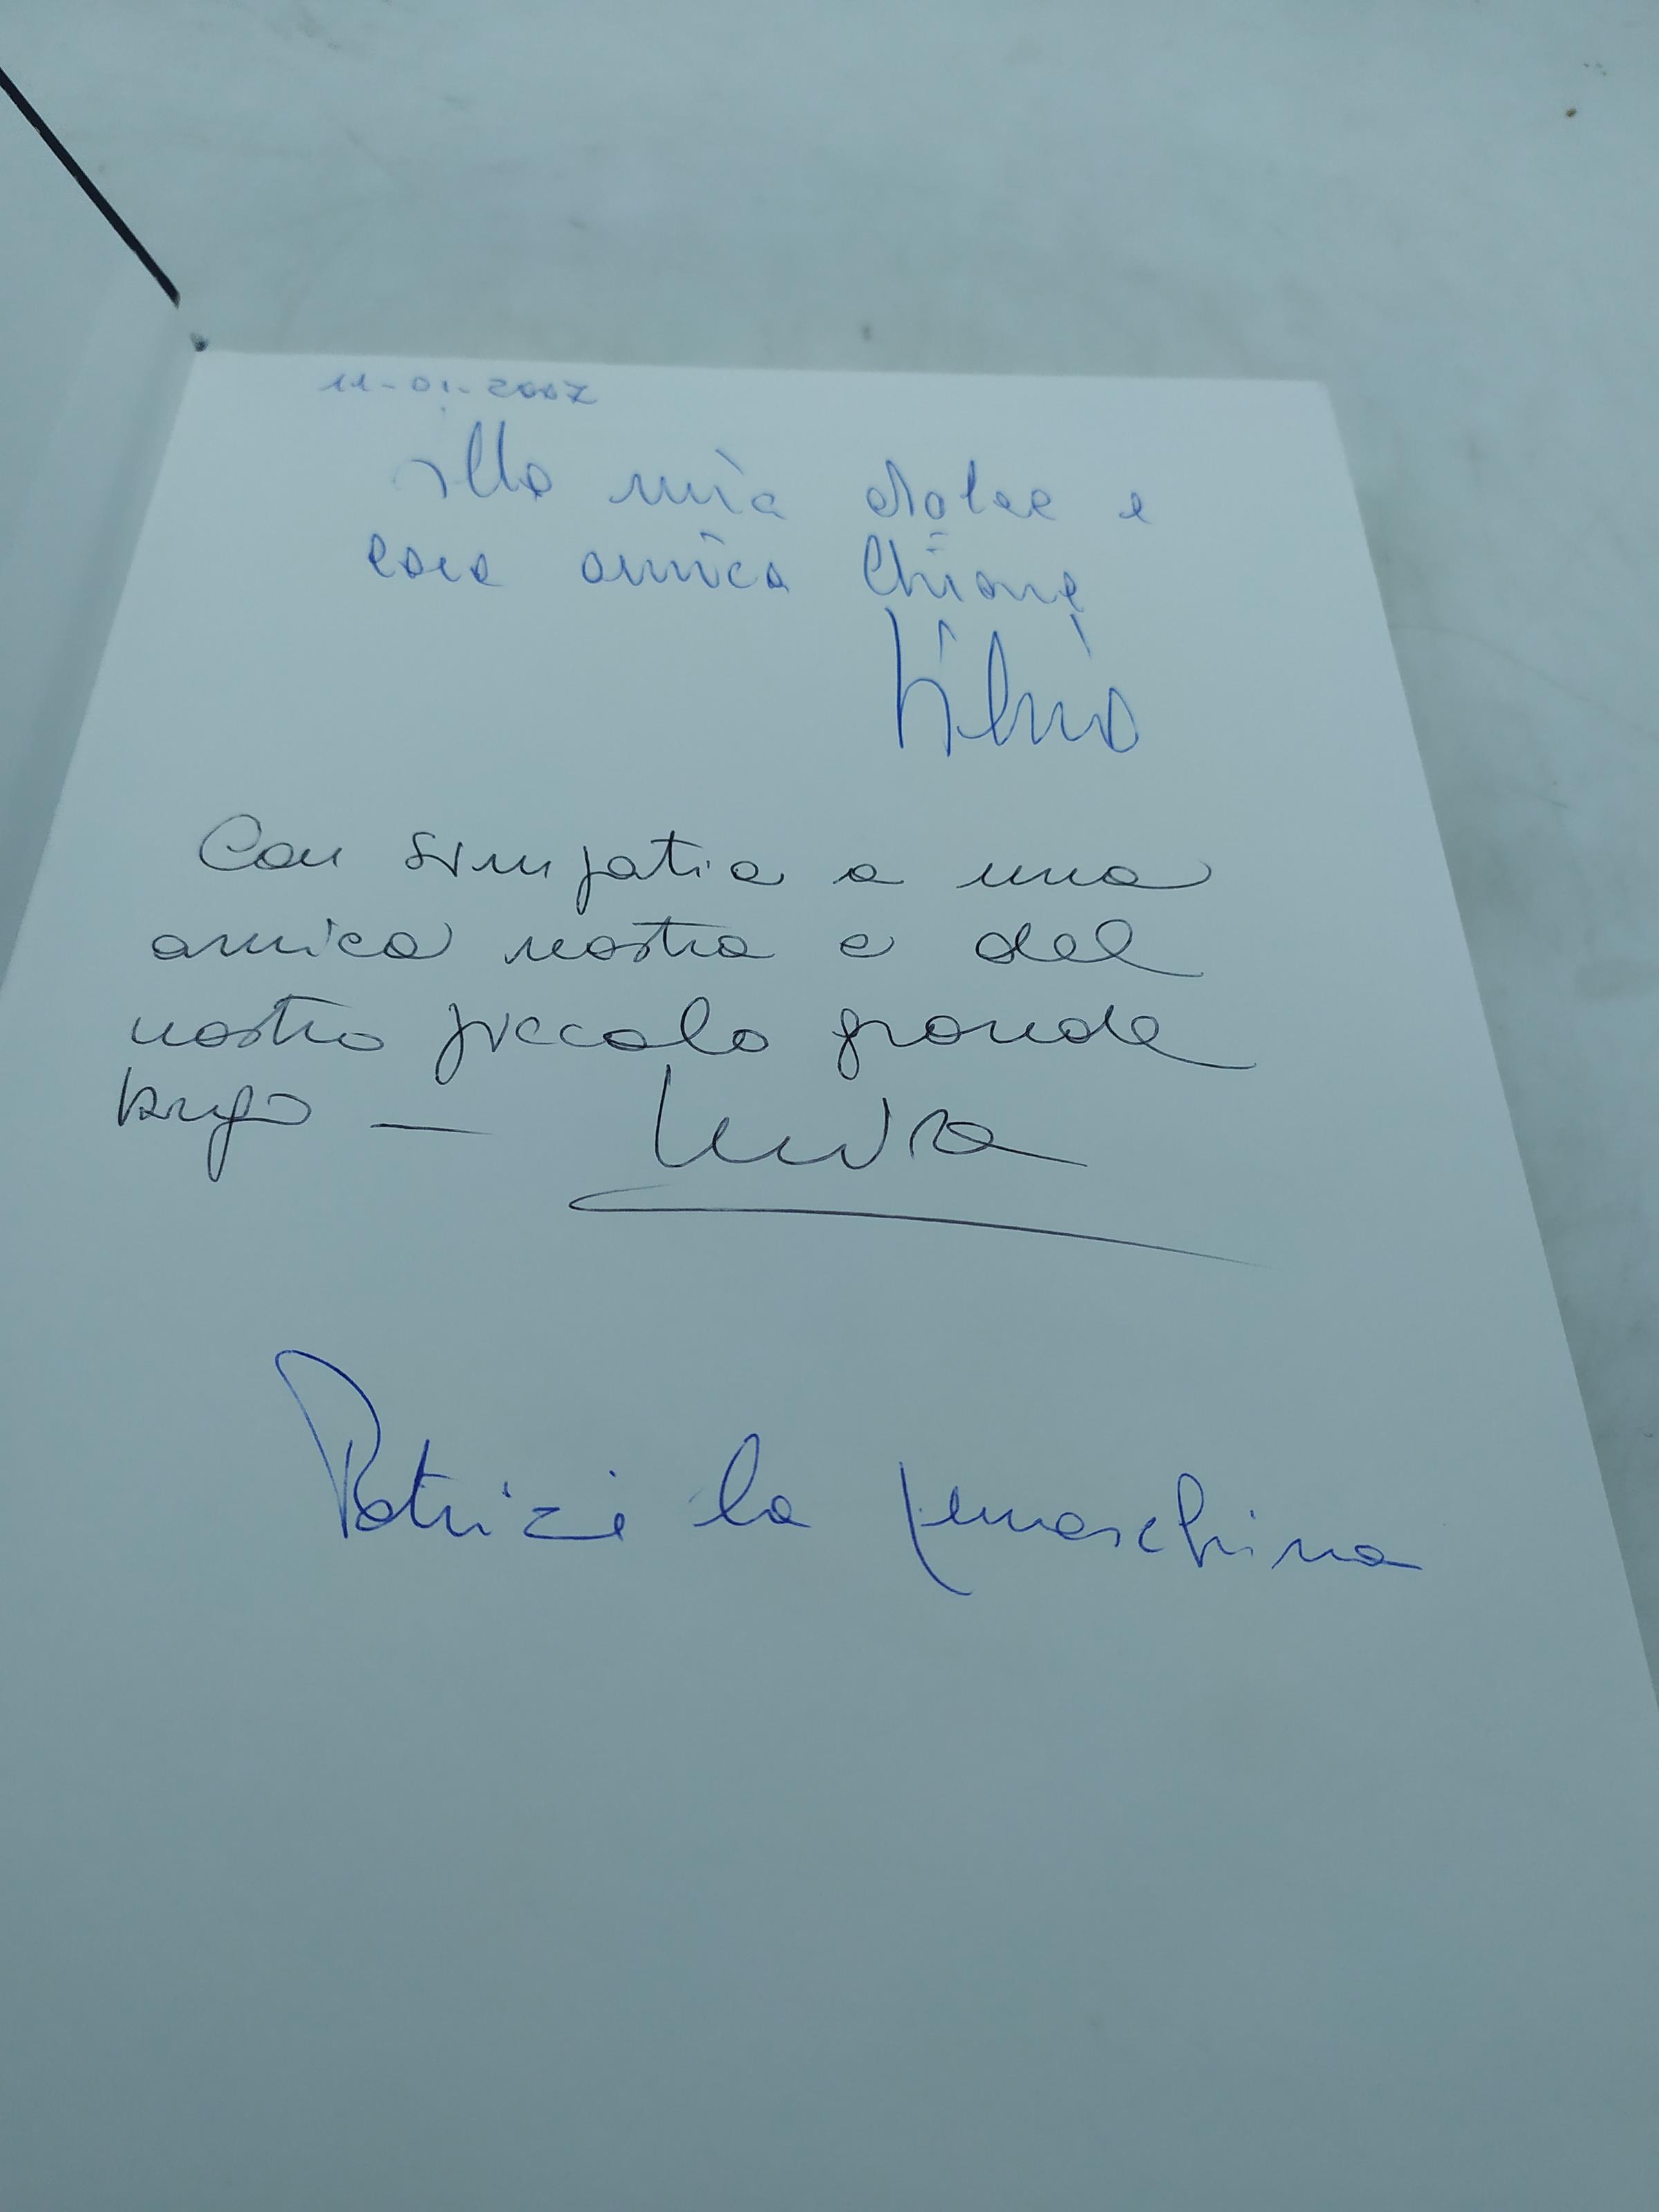 11-01-2007
Alla mia dolce e
cara amica Chiara
Con simpatia a una
amica nostra e del
nostro piccolo grande
borgo —
Patrizi la